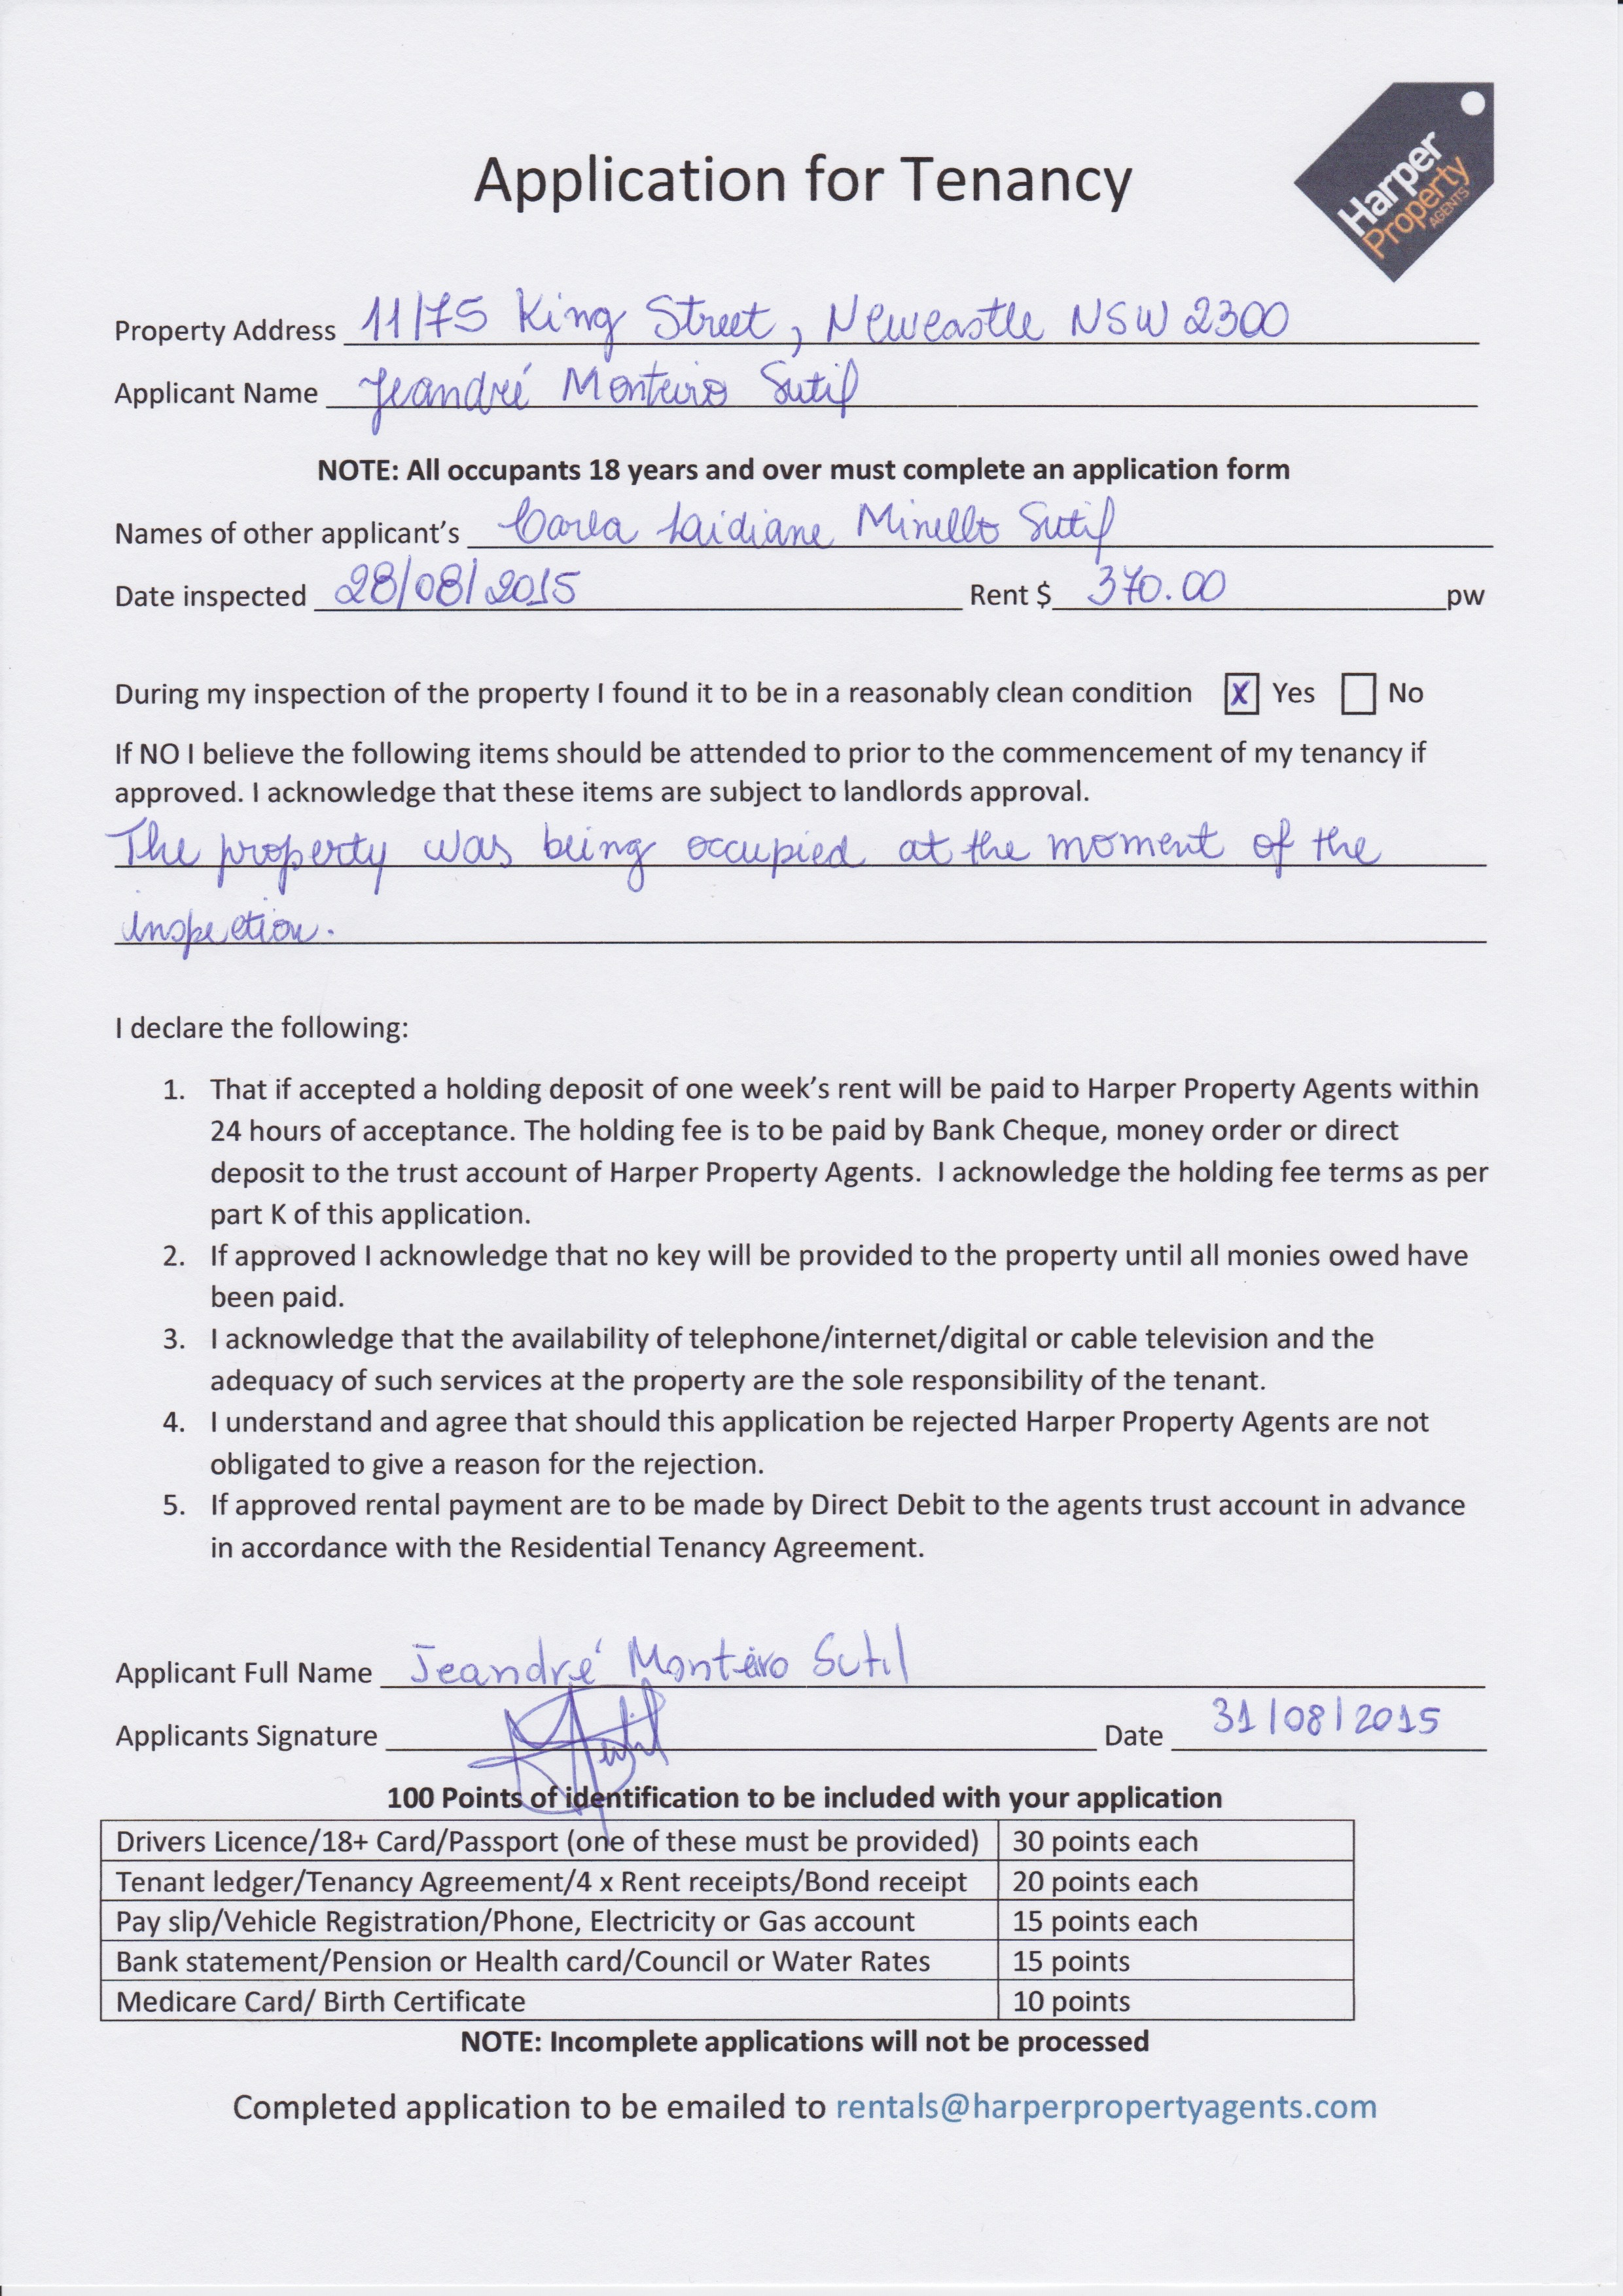 Application for Tenancy
Harper
Property
AGENTS
Property Address 11/75 King Street, Newcastle NSW 2300
Applicant Name Jeandré Monteiro Sutil
NOTE: All occupants 18 years and over must complete an application form
Names of other applicant's Carla Laidiane Minello Sutil
Date inspected 28/08/2015 Rent $ 370.00 pw
During my inspection of the property I found it to be in a reasonably clean condition X Yes No
If NO I believe the following items should be attended to prior to the commencement of my tenancy if
approved. I acknowledge that these items are subject to landlords approval.
The property was being occupied at the moment of the
inspection.
I declare the following:
1. That if accepted a holding deposit of one week's rent will be paid to Harper Property Agents within
24 hours of acceptance. The holding fee is to be paid by Bank Cheque, money order or direct
deposit to the trust account of Harper Property Agents. I acknowledge the holding fee terms as per
part K of this application.
2. If approved I acknowledge that no key will be provided to the property until all monies owed have
been paid.
3. I acknowledge that the availability of telephone/internet/digital or cable television and the
adequacy of such services at the property are the sole responsibility of the tenant.
4. I understand and agree that should this application be rejected Harper Property Agents are not
obligated to give a reason for the rejection.
5. If approved rental payment are to be made by Direct Debit to the agents trust account in advance
in accordance with the Residential Tenancy Agreement.
Applicant Full Name Jeandré Monteiro Sutil
Applicants Signature Sutil Date 31/08/2015
100 Points of identification to be included with your application
Drivers Licence/18+ Card/Passport (one of these must be provided) 30 points each
Tenant ledger/Tenancy Agreement/4 x Rent receipts/Bond receipt 20 points each
Pay slip/Vehicle Registration/Phone, Electricity or Gas account 15 points each
Bank statement/Pension or Health card/Council or Water Rates 15 points
Medicare Card/ Birth Certificate 10 points
NOTE: Incomplete applications will not be processed
Completed application to be emailed to rentals@harperpropertyagents.com